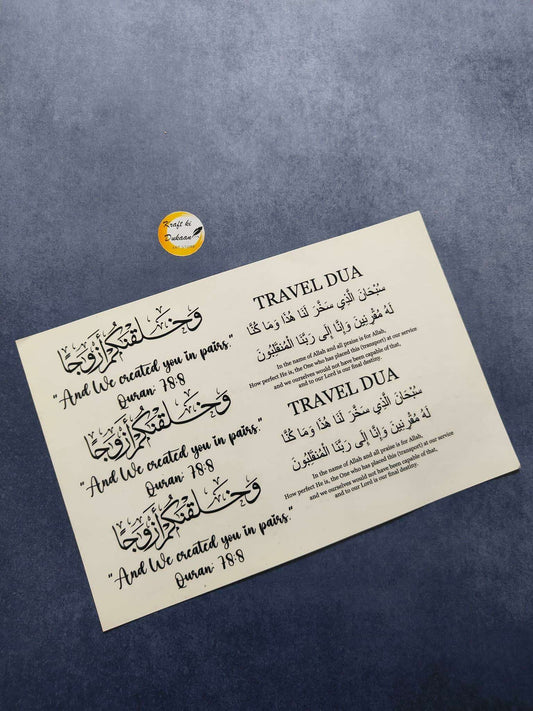 Kraft ki
Dukaan
وَخَلَقْنَاكُمْ أَزْوَاجًا
"And We created you in pairs."
Quran 78:8
وَخَلَقْنَاكُمْ أَزْوَاجًا
"And We created you in pairs."
Quran 78:8
وَخَلَقْنَاكُمْ أَزْوَاجًا
"And We created you in pairs."
Quran: 78:8
TRAVEL DUA
سُبْحَانَ الَّذِي سَخَّرَ لَنَا هٰذَا وَمَا كُنَّا
لَهُ مُقْرِنِينَ وَإِنَّا إِلَى رَبِّنَا لَمُنقَلِبُونَ
In the name of Allah and all praise is for Allah,
How perfect He is, the One who has placed this (transport) at our service
and we ourselves would not have been capable of that,
and to our Lord is our final destiny.
TRAVEL DUA
سُبْحَانَ الَّذِي سَخَّرَ لَنَا هٰذَا وَمَا كُنَّا
لَهُ مُقْرِنِينَ وَإِنَّا إِلَى رَبِّنَا لَمُنقَلِبُونَ
In the name of Allah and all praise is for Allah,
How perfect He is, the One who has placed this (transport) at our service
and we ourselves would not have been capable of that,
and to our Lord is our final destiny.